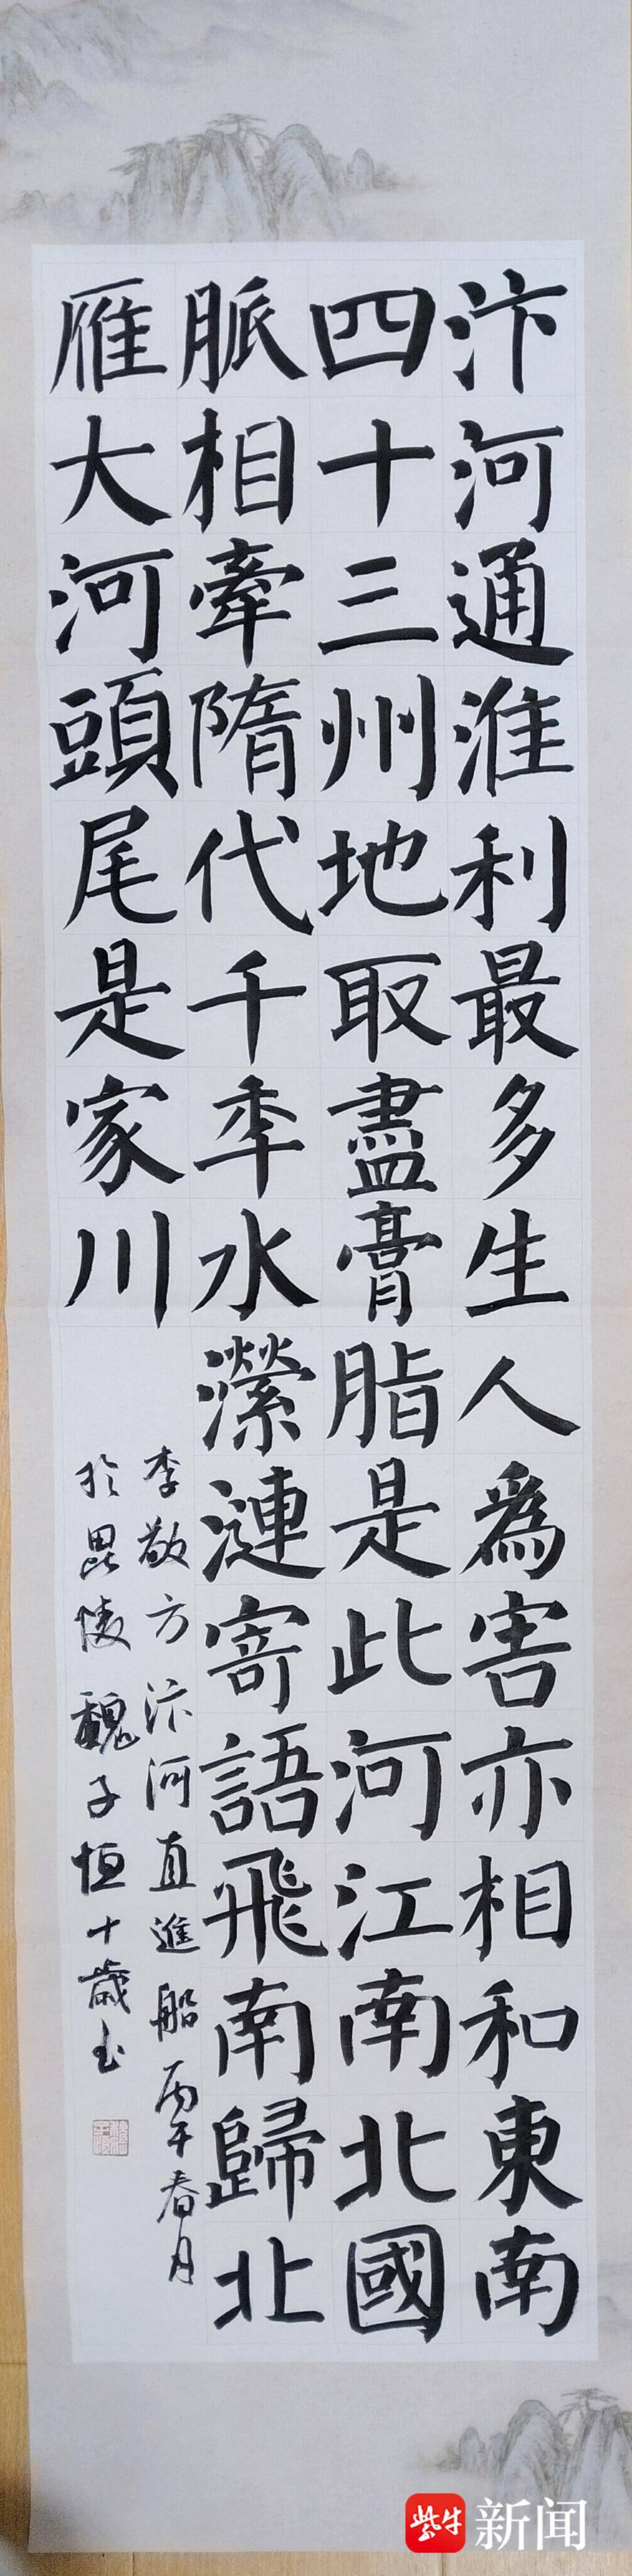 汴河通淮利最多生人為害亦相和東南
四十三州地取盡膏脂是此河江南北國
脈相牽隋代千季水瀠漣寄語飛南歸北
雁大河頭尾是家川
李敬方汴河直進船丙午春月
於毘陵魏子恒十歲书
紫牛新闻